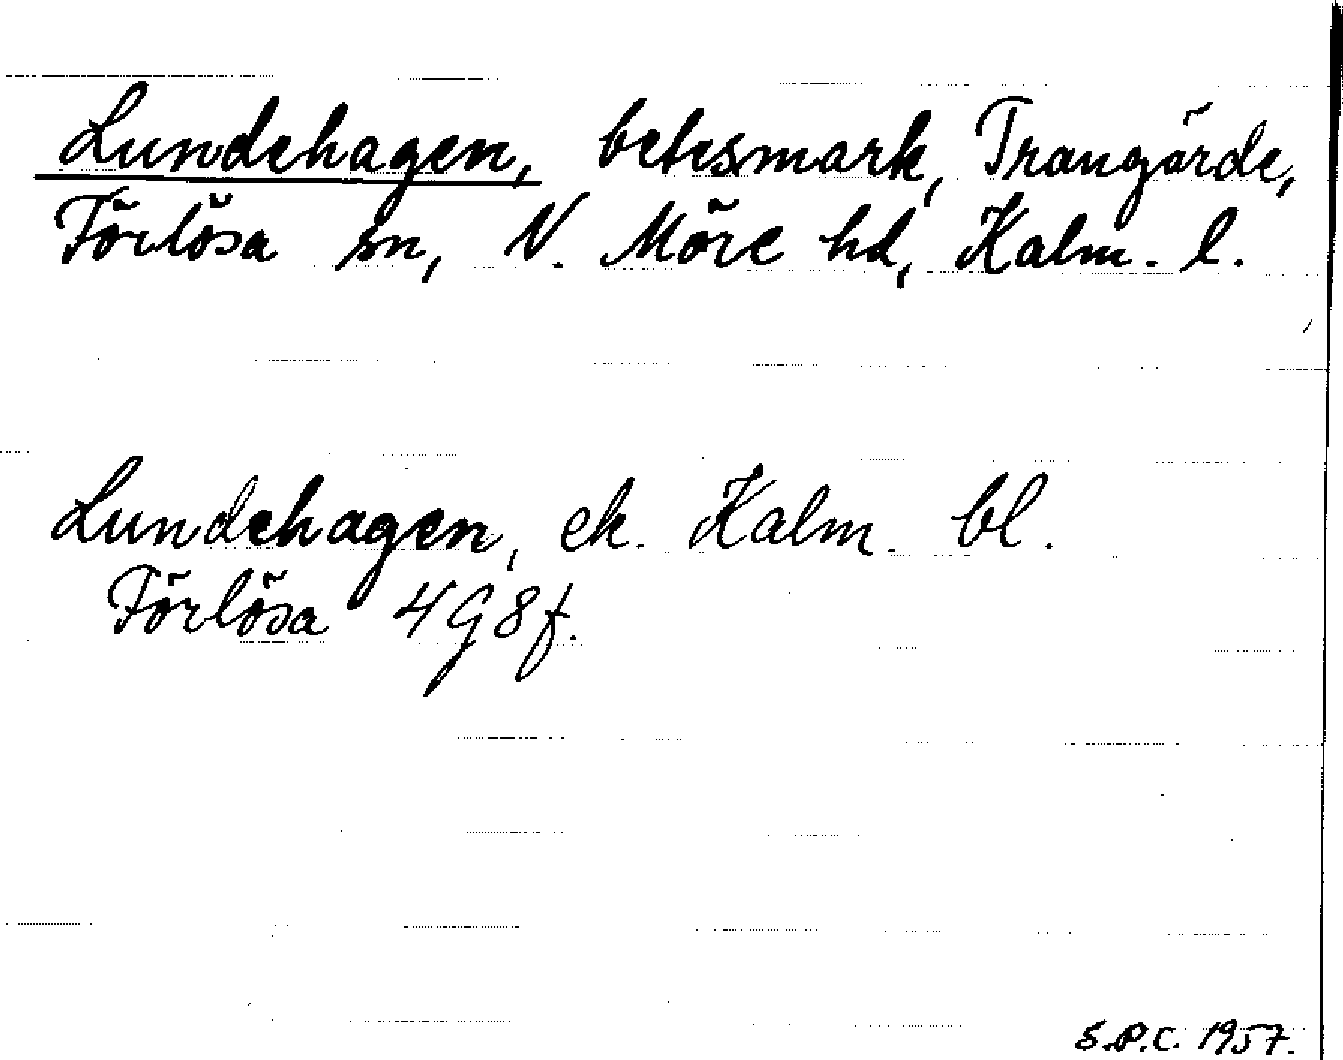 Lundehagen, betesmark, Trangärde,
Förlösa sn, N. Möre hd, Kalm. l.
Lundehagen, ek. Kalm. bl.
Förlösa 4 G 8 f.
S.P.C. 1957.